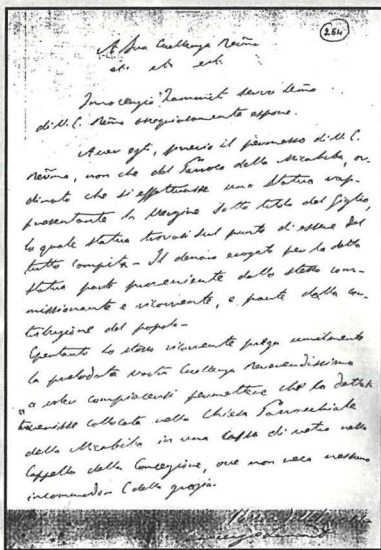 254
A Sua Eccellenza Rev͞ma
etc etc etc
Innocenzio servo
di V. E. Rev͞ma ossequiosamente espone.
Aver egli, previo il permesso di V. E.
Rev͞ma, non che del Parroco della Micabiba, or-
dinato che si effettuasse una statua rap-
presentante la Vergine sotto titolo del Giglio,
la quale statua trovasi sul punto di essere del
tutto compita - Il denaro erogato per la detta
statua parte proveniente dallo stesso com-
missionante e ricorrente, e parte dalla con-
tribuzione del popolo -
Pertanto lo stesso ricorrente prega umilmente
la prelodata Vostra Eccellenza Reverendissima
a voler compiacersi permettere che la detta
venisse collocata nella Chiesa Parrocchiale
della Micabiba in una cassa di vetro nella
Cappella della Concezione, ove non reca nessuno
incommodo - Che della grazia.